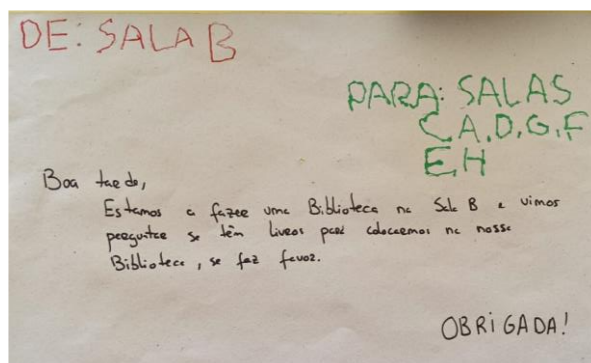 DE: SALA B
PARA: SALAS
C A, D, G, F
E, H
Boa tarde,
Estamos a fazer uma Biblioteca na Sala B e vimos
perguntar se têm livros para colocarmos na nossa
Biblioteca, se faz favor.
OBRIGADA!